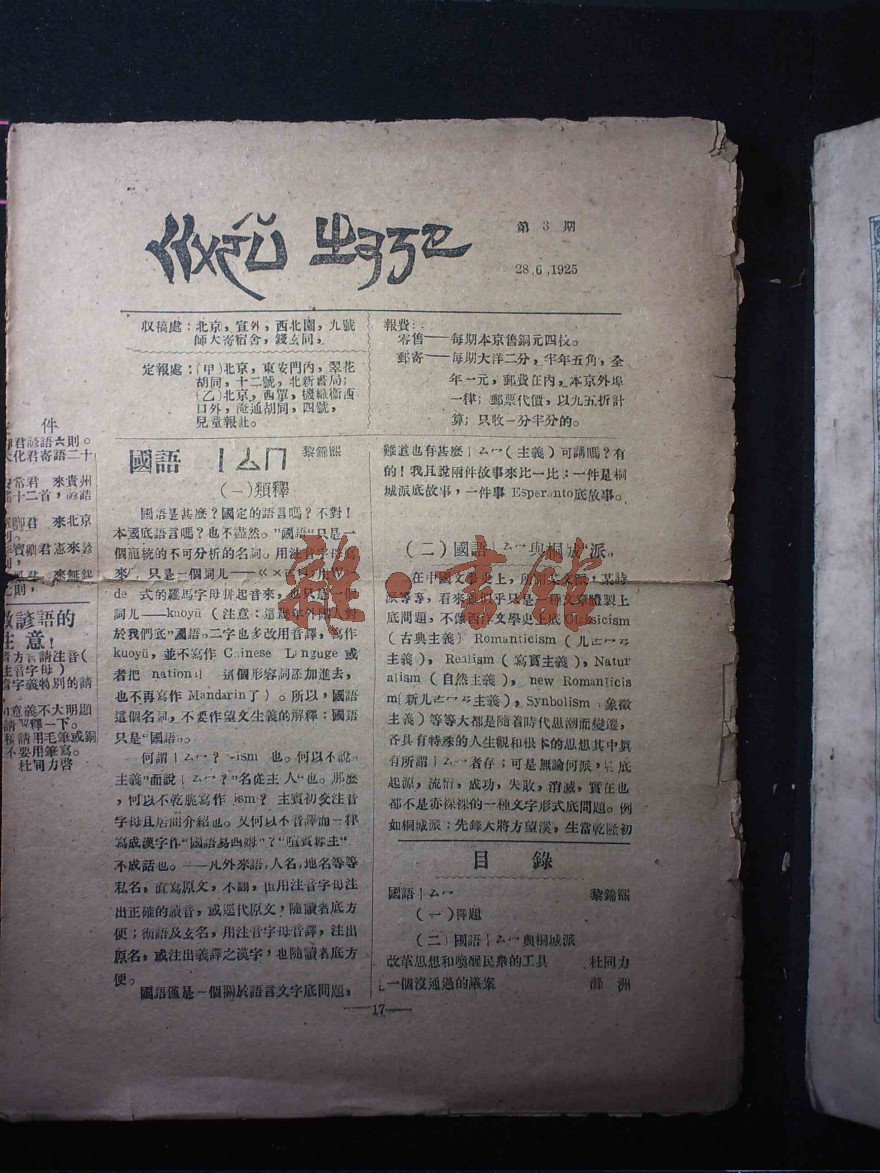 第 3 期
28,6,1925
収稿處：北京，宣外，西北園，九號
師大寄宿舍，錢玄同，
定報處：(甲)北京，東安門內，翠花
胡同，十二號，北新書局；
(乙)北京，西單，機織衛西
口外，
胡同，四號，
兒童報社。
報費：
零售——每期本京售銅元四枚。
郵寄——每期大洋二分，半年五角，全
年一元，郵費在內，本京外埠
一律；郵票代價，以九五折計
算；只收一分半分的。
國語 ㄧㄙㄇ 黎錦熙
(一)類釋
國語是甚麼？國定的語言嗎？不對！
本國底語言嗎？也不盡然。"國語"只是一
個籠統的不可分析的名詞。用注音字母
來，只是一個詞儿——
de 式的羅馬字母拼起音來，也只是一個
詞儿——kuoyü（注意：這幾年外國人對
於我們底"國語"二字也多改用音譯，寫作
kuoyü，並不寫作 Chinese Language 或
者把 national 這個形容詞添加進去，
也不再寫作 Mandarin了）。所以，國語
這個名詞，不要作望文生義的解釋：國語
只是"國語"。
何謂ㄧㄙㄇ？-ism 也。何以不說
主義"而說ㄧㄙㄇ？"名從主人"也。那麼
，何以不乾脆寫作 ism？主賓初交注音
字母且居間介紹也。又何以不音譯而一律
寫成漢字作"國語易西姆"？"喧賓奪主"
不成話也。——凡外來語，人名，地名等等
私名，直寫原文，不翻，但用注音字母注
出正確的讀音，或逕代原文，隨讀者底方
便；術語及玄名，用注音字母音譯，注出
原名，或注出義譯之漢字，也隨讀者底方
便。
國語僅是一個關於語言文字底問題，
難道也有甚麼ㄧㄙㄇ（主義）可講嗎？有
的！我且說兩件故事來比一比：一件是桐
城派底故事，一件事 Esperanto底故事。
(二)國語ㄧㄙㄇ與桐城"派"
在中國文學史上，所謂某文派，某詩
派等等，看來似乎只是一種文章體製上
底問題，不像西洋文學史上底 Classicism
（古典主義）Romanticism（
主義），Realism（寫實主義），Natur
alism（自然主義），new Romanticis
m（新
主義），Synbolism（象徵
主義）等等大都是隨着時代思潮而變遷，
各具有特殊的人生觀和根本的思想其中眞
有所謂ㄧㄙㄇ者存；可是無論何派，其底
起源，流衍，成功，失敗，消滅，實在也
都不是赤裸裸的一種文字形式底問題。例
如桐城派：先鋒大將方望溪，生當乾隆初
目 錄
國語ㄧㄙㄇ 黎錦熙
(一)釋題
(二)國語ㄧㄙㄇ與桐城派
改革思想和喚醒民衆的工具 杜同力
一個沒通過的議案 蘇 洲
—17—
件
君諺語六則。
化君寄語二十
常君 來貴州
十二首，諺語
君 來北京
君 來無錫
之則，
諺語的
注意！
方言請注音（
注音字母）
字義特別的請
意義不大明顯
請解釋一下。
請用毛筆或鋼
不要用筆寫。
杜同力啓
雜·書館